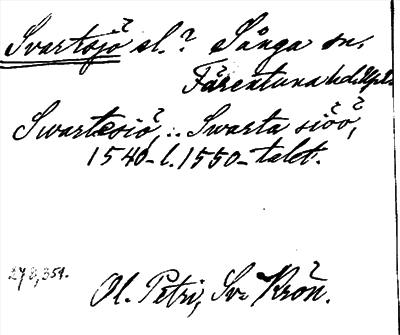 Svartsjö sl.? Sånga sn.
Färentuna hd. Upl.
Swartesiö, .. Swarta siöö,
1540- l. 1550-talet.
278, 351.
Ol. Petri, Sv. Krön.